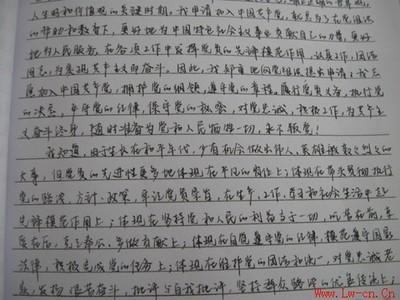 人生观和价值观的关键时期，我申请加入中国共产党，起
的帮助和教育下，更好地为中国特色社会主义事业贡献自己的力量，更好
地为人民服务，在各项工作中发挥党员的先锋模范作用，认真工作，团结
同志，为实现共产主义而奋斗。因此，我郑重地向党组织提出申请：我志
愿加入中国共产党，拥护党的纲领，遵守党的章程，履行党员义务，执行党
的决定，严守党的纪律，保守党的秘密，对党忠诚，积极工作，为共产主
义奋斗终身，随时准备为党和人民牺牲一切，永不叛党！
我知道，由于生长在和平年代，少有机会做出伟人、英雄般轰轰烈烈的
大事，但党员的先进性更多地体现在平凡的岗位上；体现在带头贯彻执行
党的路线、方针、政策，牢记党员宗旨，在生产、工作、学习和社会生活中起
先锋模范作用上；体现在坚持党和人民的利益高于一切，吃苦在前，享
受在后，克己奉公，多做贡献上；体现在自觉遵守党的纪律，模范遵守国家
法律，积极完成党的任务上；体现在维护党的团结和统一，对党忠诚老
实，发扬 艰苦奋斗，批评与自我批评，坚持群众路线的优良传统上；
www.Lw-cn.Cn